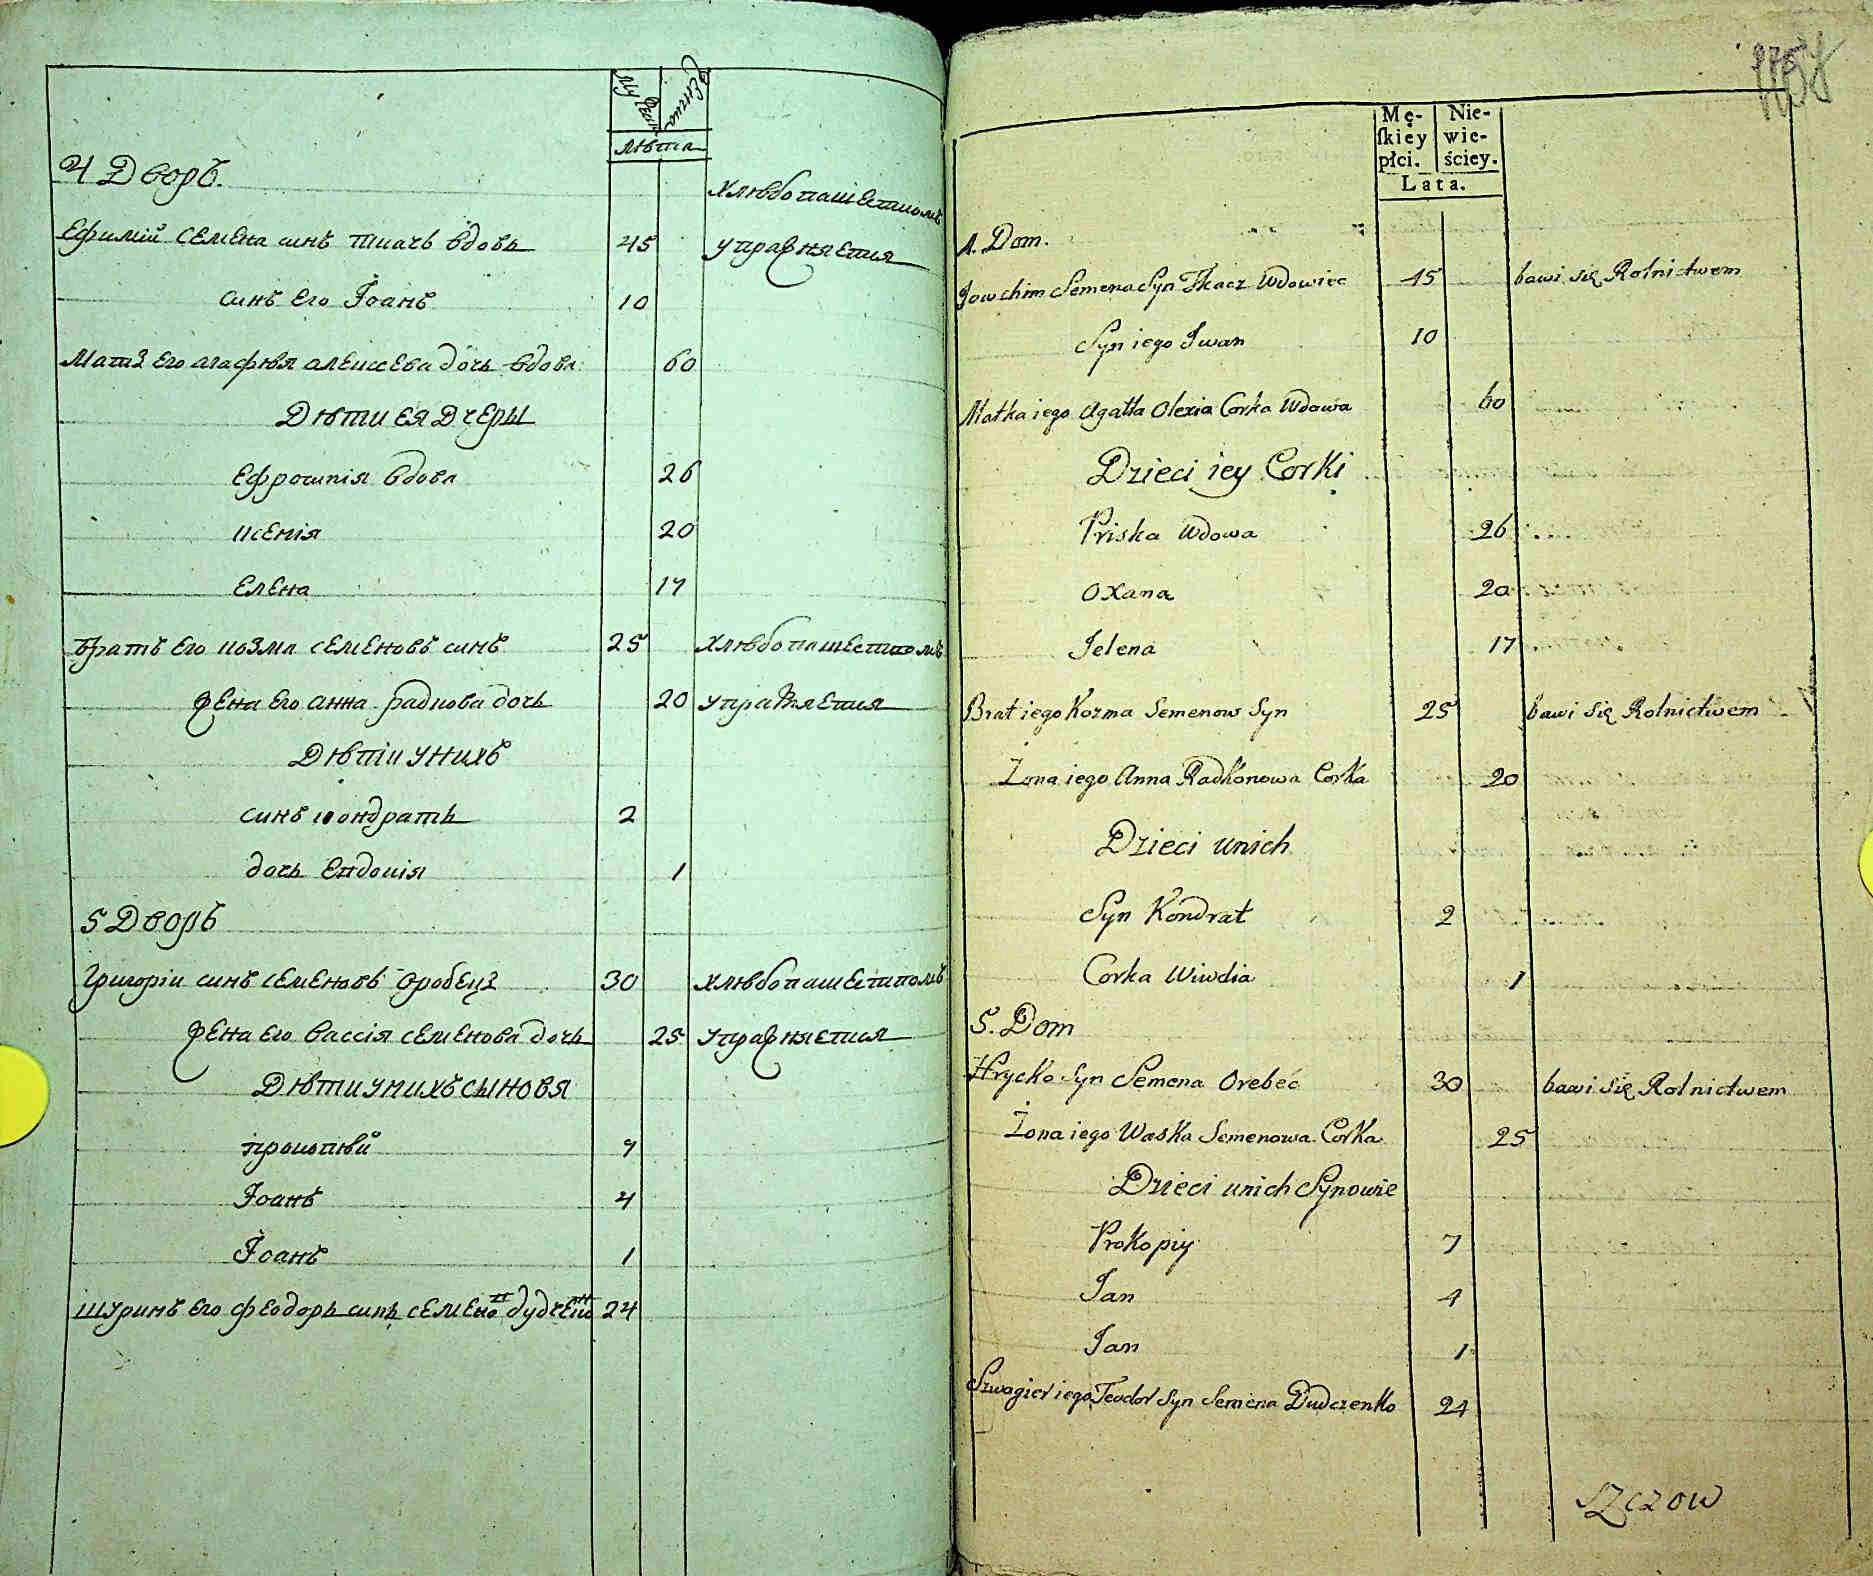 Мужеска
Женска
лѣта
4 Дворъ.
хлѣбопашествомъ
Ефимій Семена синъ ткачъ вдовъ 45 упражняется
синъ его Іоанъ 10
Мати его агафія алексеева дочъ вдова 60
Дѣти ея Дчеры
Ефросинія вдова 26
ксенія 20
Елена 17
братъ его козма семеновъ синъ 25 хлѣбопашествомъ
жена его анна радкова дочъ 20 упражняется
Дѣти унихъ
синъ кондратъ 2
дочъ Евдокія 1
5 Дворъ
Григоріи синъ семеновъ оробецъ 30 хлѣбопашествомъ
жена его вассія семенова дочъ 25 упражняется
Дѣти унихъ сыновя
прокопій 7
Іоанъ 4
Іоанъ 1
шуринъ его феодоръ синъ семено дудченко 24
Mę-
ſkiey
płci.
Nie-
wie-
ściey.
Lata.
4. Dom.
Jowchim Semena Syn Tkacz Wdowiec 45 bawi się Rolnictwem
Syn iego Iwan 10
Matka iego Agatta Olexia Corka Wdowa 60
Dzieci iey Corki
Priska Wdowa 26
Oxana 20
Jelena 17
Brat iego Kozma Semenow Syn 25 bawi się Rolnictwem
Żona iego Anna Radkonowa Corka 20
Dzieci unich
Syn Kondrat 2
Corka Wiwdia 1
5. Dom
Hrycko Syn Semena Orebec 30 bawi się Rolnictwem
Żona iego Waska Semenowa Corka 25
Dzieci unich Synowie
Prokopiy 7
Jan 4
Jan 1
Szwagier iego Teodor Syn Semena Dudczenko 24
Szczow